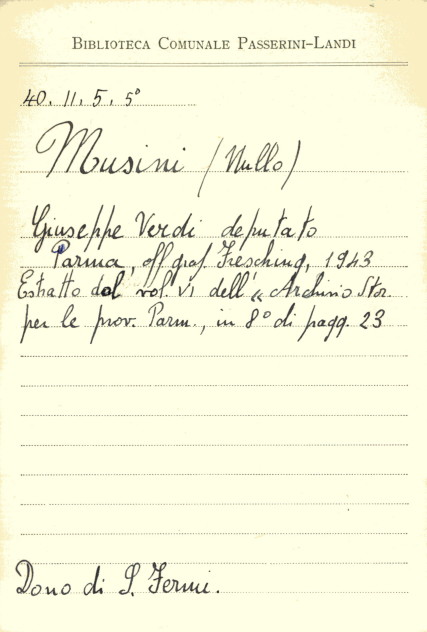 BIBLIOTECA COMUNALE PASSERINI-LANDI
40. 11. 5. 5°
Musini (Nullo)
Giuseppe Verdi deputato
Parma, off. graf. Fresching, 1943
Estratto dal vol. VI dell' "Archivio Stor.
per le prov. Parm., in 8° di pagg. 23
Dono di S. Fermi.